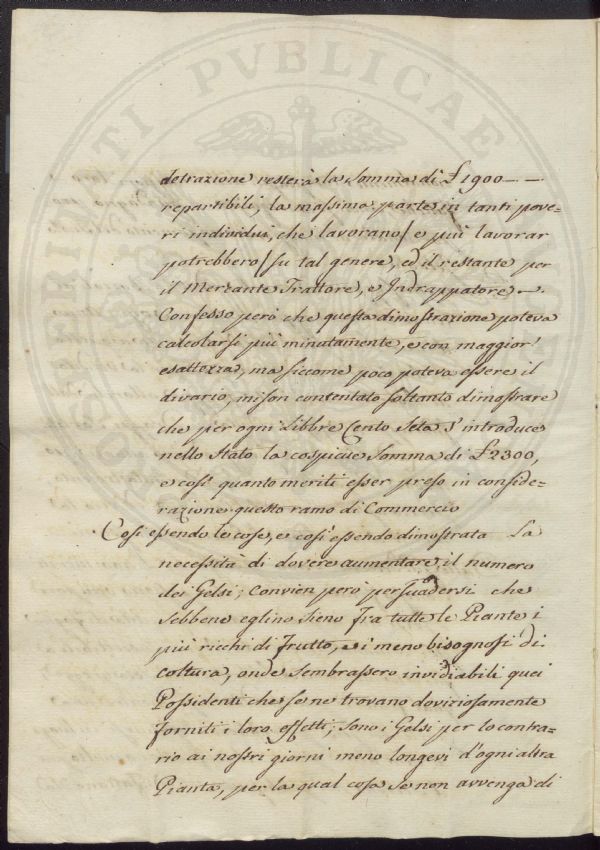 detrazione resterà la Somma di £ 1900 — —
repartibili, la massima parte in tanti pove-
ri individui, che lavorano / e più lavorar
potrebbero / su tal genere, ed il restante per
il Mercante Trattore, e Indrappatore —
Confesso però che questa dimostrazione poteva
calcolarsi più minutamente, e con maggior'
esattezza, ma siccome poco poteva essere il
divario, mi son contentato soltanto dimostrare
che per ogni Libbre Cento Seta s' introduce
nello Stato la cospicue Somma di £ 2300,
e così quanto meriti esser preso in conside-
razione questo ramo di Commercio
Così essendo le cose, e così essendo dimostrata La
necessità di dovere aumentare il numero
dei Gelsi; Convien però persuadersi che
Sebbene eglino Sieno fra tutte le Piante i
più ricchi di frutto, e i meno bisognosi di
coltura, onde Sembrassero invidiabili quei
Possidenti che se ne trovano doviziosamente
forniti i loro effetti; sono i Gelsi per lo contra-
rio ai nostri giorni meno longevi d'ogni altra
Pianta, per la qual cosa se non avvenga di